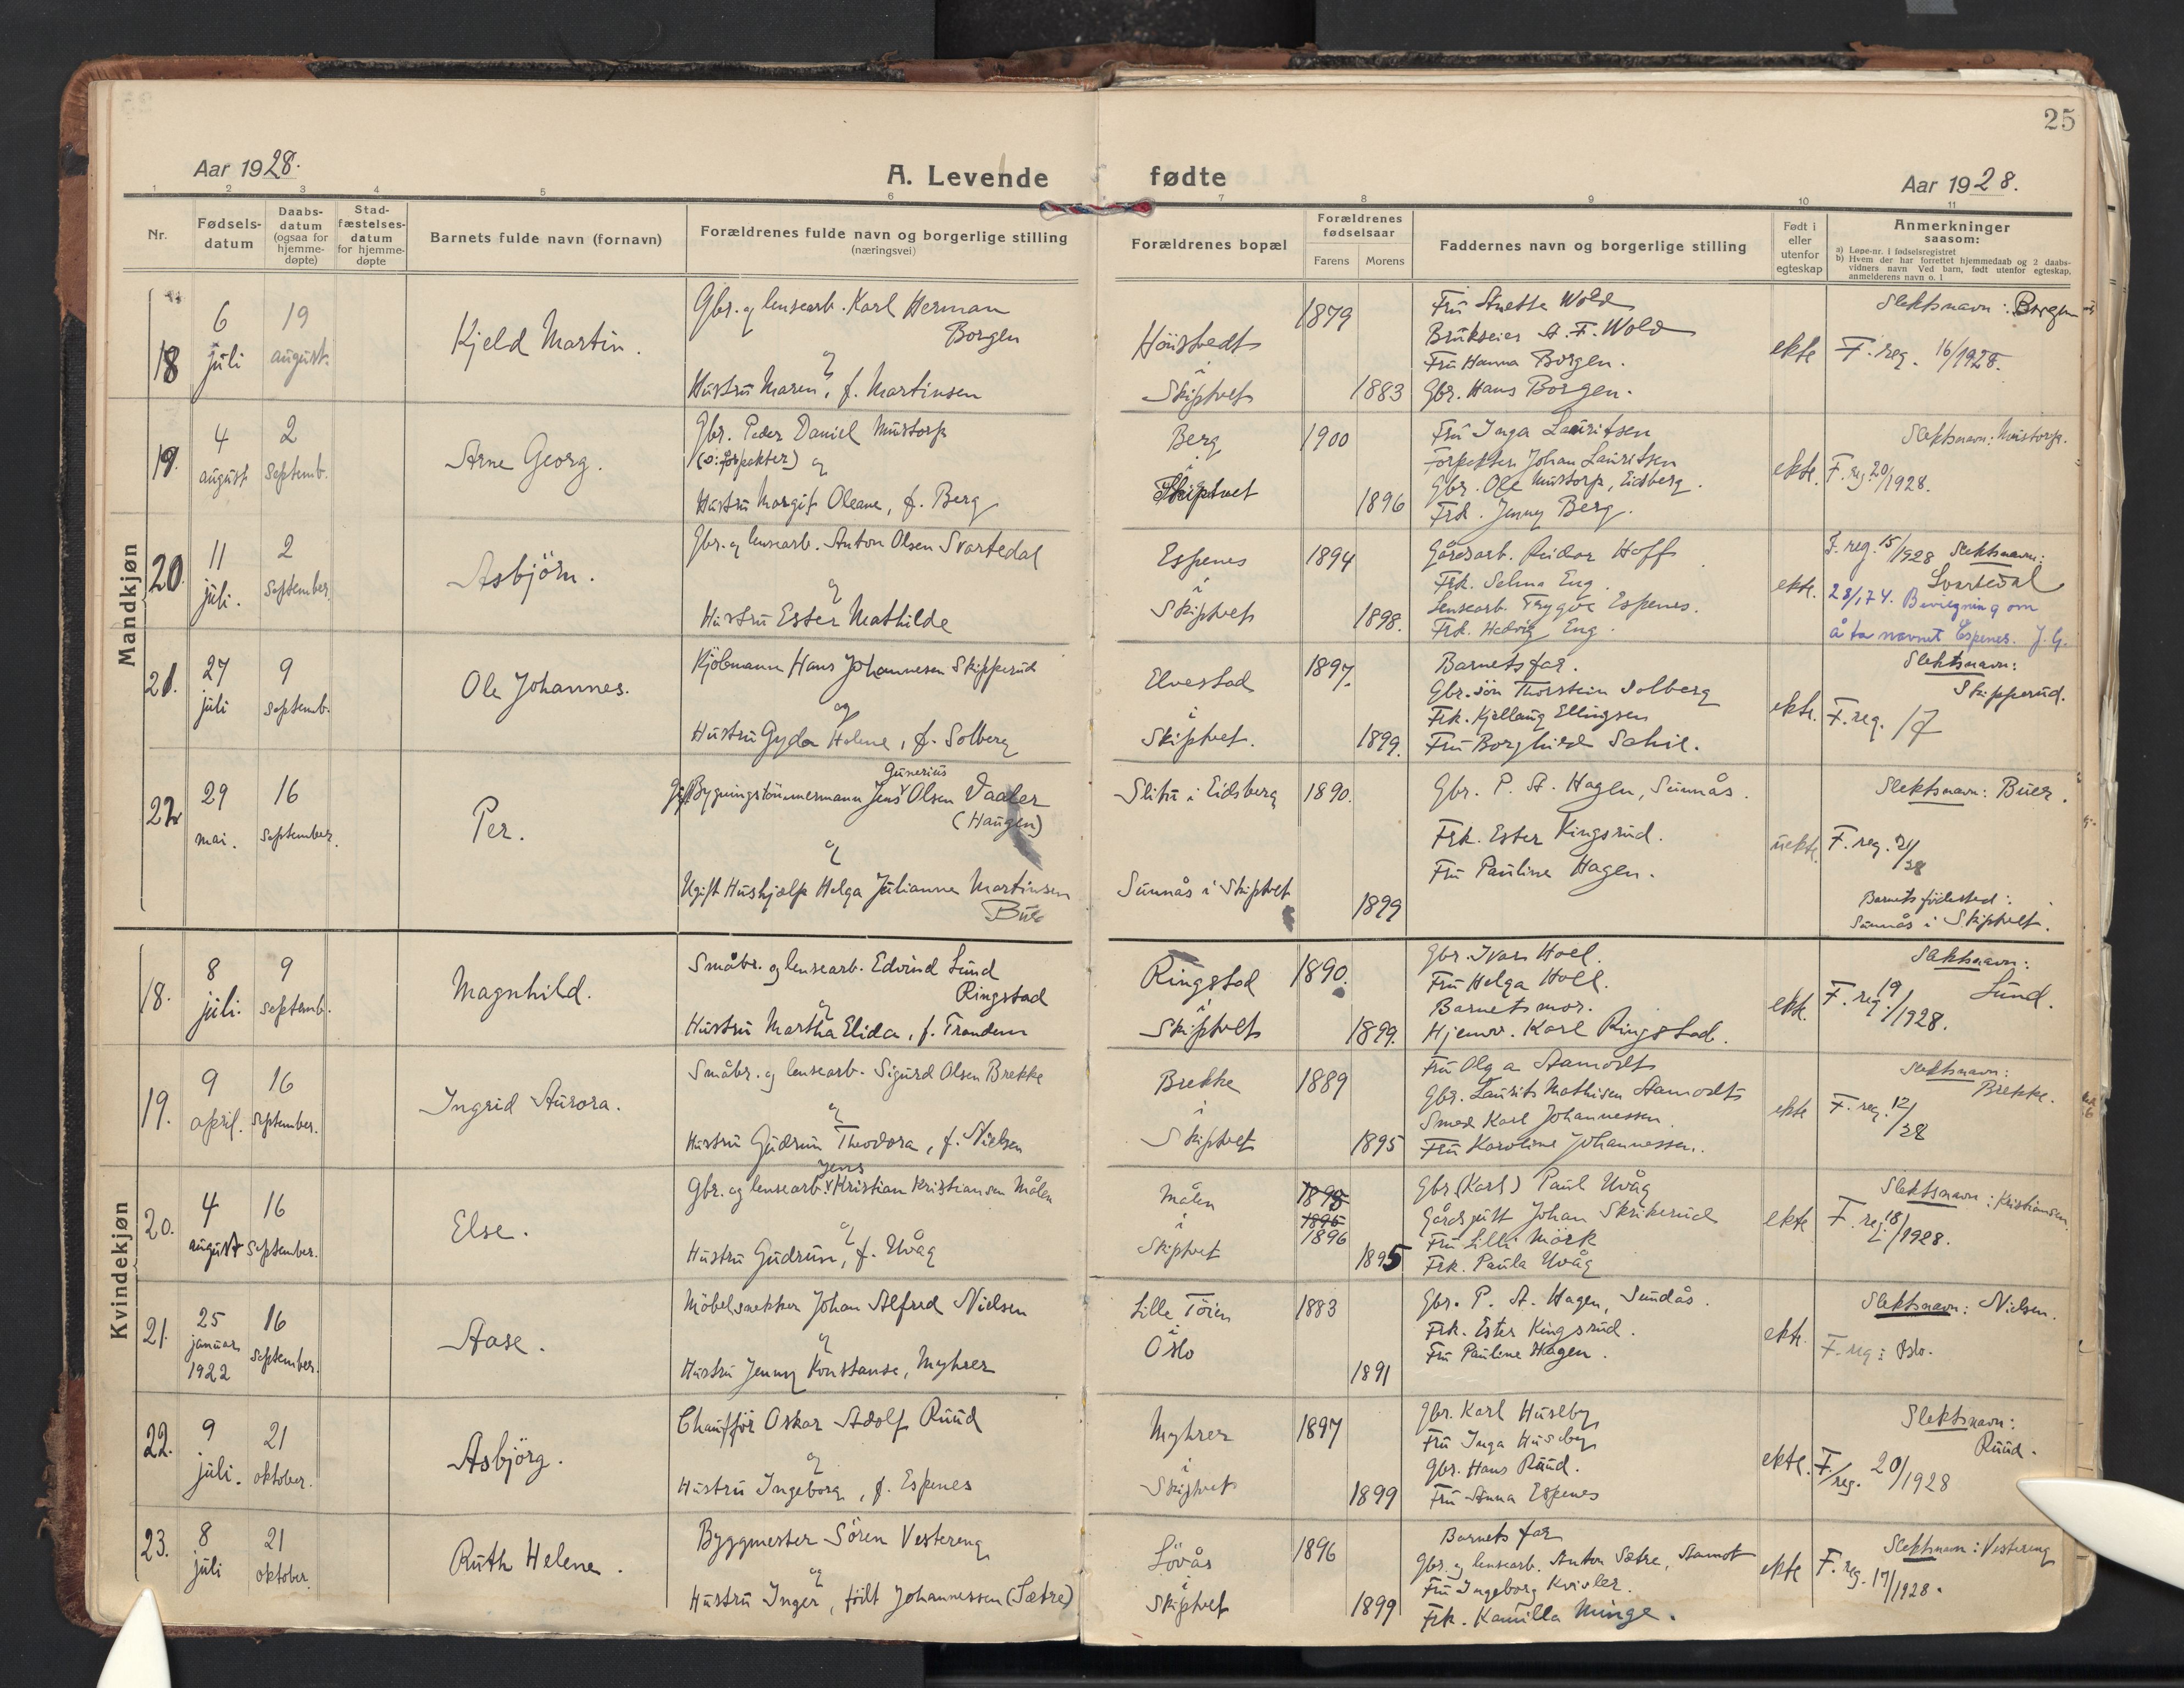 25
Aar 1928.
A. Levende fødte
Aar 1928.
1 2 3 4 5 6 7 8 9 10 11
Nr.
Fødselsdatum
Daabsdatum (ogsaa for hjemmedøpte)
Stadfæstelsesdatum for hjemmedøpte
Barnets fulde navn (fornavn)
Forældrenes fulde navn og borgerlige stilling (næringsvei)
Forældrenes bopæl
Forældrenes fødselsaar
Farens Morens
Faddernes navn og borgerlige stilling
Født i eller utenfor egteskap
Anmerkninger saasom:
a) Løpe-nr. i fødselsregistret
b) Hvem der har forrettet hjemmedaab og 2 daabsvidners navn Ved barn, født utenfor egteskap, anmelderens navn o. l
Mandkjøn
18
6 juli
19 august.
Kjeld Martin.
Gbr. og lensearb. Karl Herman
Borgen
og
Hustru Maren, f. Martinsen
i
Skiptvet
1879
1883
Fru Anette Wold
Brukseier A. F. Wold
Fru Hanna Borgen.
Gbr. Hans Borgen.
ekte
Slektsnavn: Borgen
F. reg. 16/1928.
19.
4 august
2 Septemb.
Arne Georg.
Gbr. Peder Daniel Mustorp
(o: forpakter) og
Hustru Margit Oleane, f. Berg
Berg
i
Skiptvet
1900
1896
Fru Inga Lauritsen
Forpakter Johan Lauritsen
Gbr. Ole Mustorp, Eidsberg.
Frk. Jenny Berg.
ekte.
Slektsnavn: Mustorp.
F. reg. 20/1928.
20.
11 juli.
2 September.
Asbjörn.
Gbr. og lensearb. Anton Olsen Svartedal
og
Hustru Ester Mathilde
Espenes
i
Skiptvet
1894
1898.
Gårdsarb. Reidar Hoff
Frk. Selma Eng.
Lensearb. Trygve Espenes.
Frk. Hedvig Eng.
ekte.
F. reg. 15/1928 Slektsnavn:
Svartedal
Bevilgning om
å ta navnet Espenes. J. G.
21.
27 juli
9 Septemb.
Ole Johannes.
Kjöbmann Hans Johannesen Skipperud
og
Hustru Gyda Helene, f. Solberg
Elvestad
i
Skiptvet.
1897.
1899.
Barnets far.
Gbr. sön Thorstein Solberg
Frk. Kjellaug Ellingsen
Fru Borghild Schie.
ekte.
Slektsnavn:
Skipperud.
F. reg. 17
22
29 mai.
16 September.
Per.
Gunerius
Gift Bygningstömmermann Jens Olsen Vaaler
(Haugen)
og
Ugift Hushjælp Helga Julianne Martinsen
Buer
Slitu i Eidsberg
Sunnås i Skiptvet
1890.
1899
Gbr. P. A. Hagen, Sunnås.
Frk. Ester Kingsrud.
Fru Pauline Hagen.
uekte.
Slektsnavn: Buer.
F. reg. 21/28
Barnets födested:
Sunnås i Skiptvet.
Kvindekjøn
18.
8 juli.
9 Septemb.
Magnhild.
Småbr. og lensearb. Edvind Lund
Ringstad
og
Hustru Martha Elida, f. Trandem
Ringstad
i
Skiptvet
1890.
1899.
Gbr. Ivar Hoel.
Fru Helga Hoel.
Barnets mor.
Hjemv. Karl Ringstad.
ekte.
Slektsnavn:
Lund.
F. reg. 19/1928.
19.
9 april.
16 September.
Ingrid Aurora.
Småbr. og lensearb. Sigurd Olsen Brekke
og
Hustru Gudrun Theodora, f. Nielsen
Brekke
i
Skiptvet
1889
1895
Fru Olga Aamodt
Gbr. Laurits Mathisen Aamodt
Smed Karl Johannessen.
Fru Karoline Johannessen.
ekte
Slektsnavn:
Brekke.
F. reg. 12/28
20.
4 august
16 September.
Else.
Jens
Gbr. og lensearb. Kristian Kristiansen Målen
og
Hustru Gudrun, f. Uvåg
Målen
i
Skiptvet
1895
1896
1895
Gbr. (Karl) Paul Uvåg
Gårdsgutt Johan Skrikerud
Fru Lilli Mörk
Frk. Paula Uvåg
ekte
Slektsnavn: Kristiansen
F. reg. 18/1928.
21.
25 januar 1922
16 September.
Aase.
Möbelsnekker Johan Alfred Nielsen
og
Hustru Jenny Konstanse, Myhrer
Lille Töien
i
Oslo
1883
1891
Gbr. P. A. Hagen, Sundås.
Frk. Ester Kingsrud.
Fru Pauline Hagen.
ekte.
Slektsnavn: Nielsen.
F. reg: Oslo.
22.
9 juli.
21 oktober.
Asbjörg.
Chauffør Oskar Adolf Ruud
og
Hustru Ingeborg, f. Espenes
Myhrer
i
Skiptvet
1897
1899
Gbr. Karl Huseby
Fru Inga Huseby
Gbr. Hans Ruud.
Fru Anna Espenes
ekte.
Slektsnavn:
Ruud.
F. reg. 20/1928
23.
8 juli
21 oktober.
Ruth Helene.
Byggmester Sören Vestereng
og
Hustru Inger, födt Johannessen (Sætre)
Lövås
i
Skiptvet
1896
1899
Barnets far
Gbr. og lensearb. Anton Sætre, Aamot
Fru Ingeborg Kvisler.
Frk. Kamilla Minge.
ekte
Slektsnavn: Vestereng
F. reg. 17/1928.